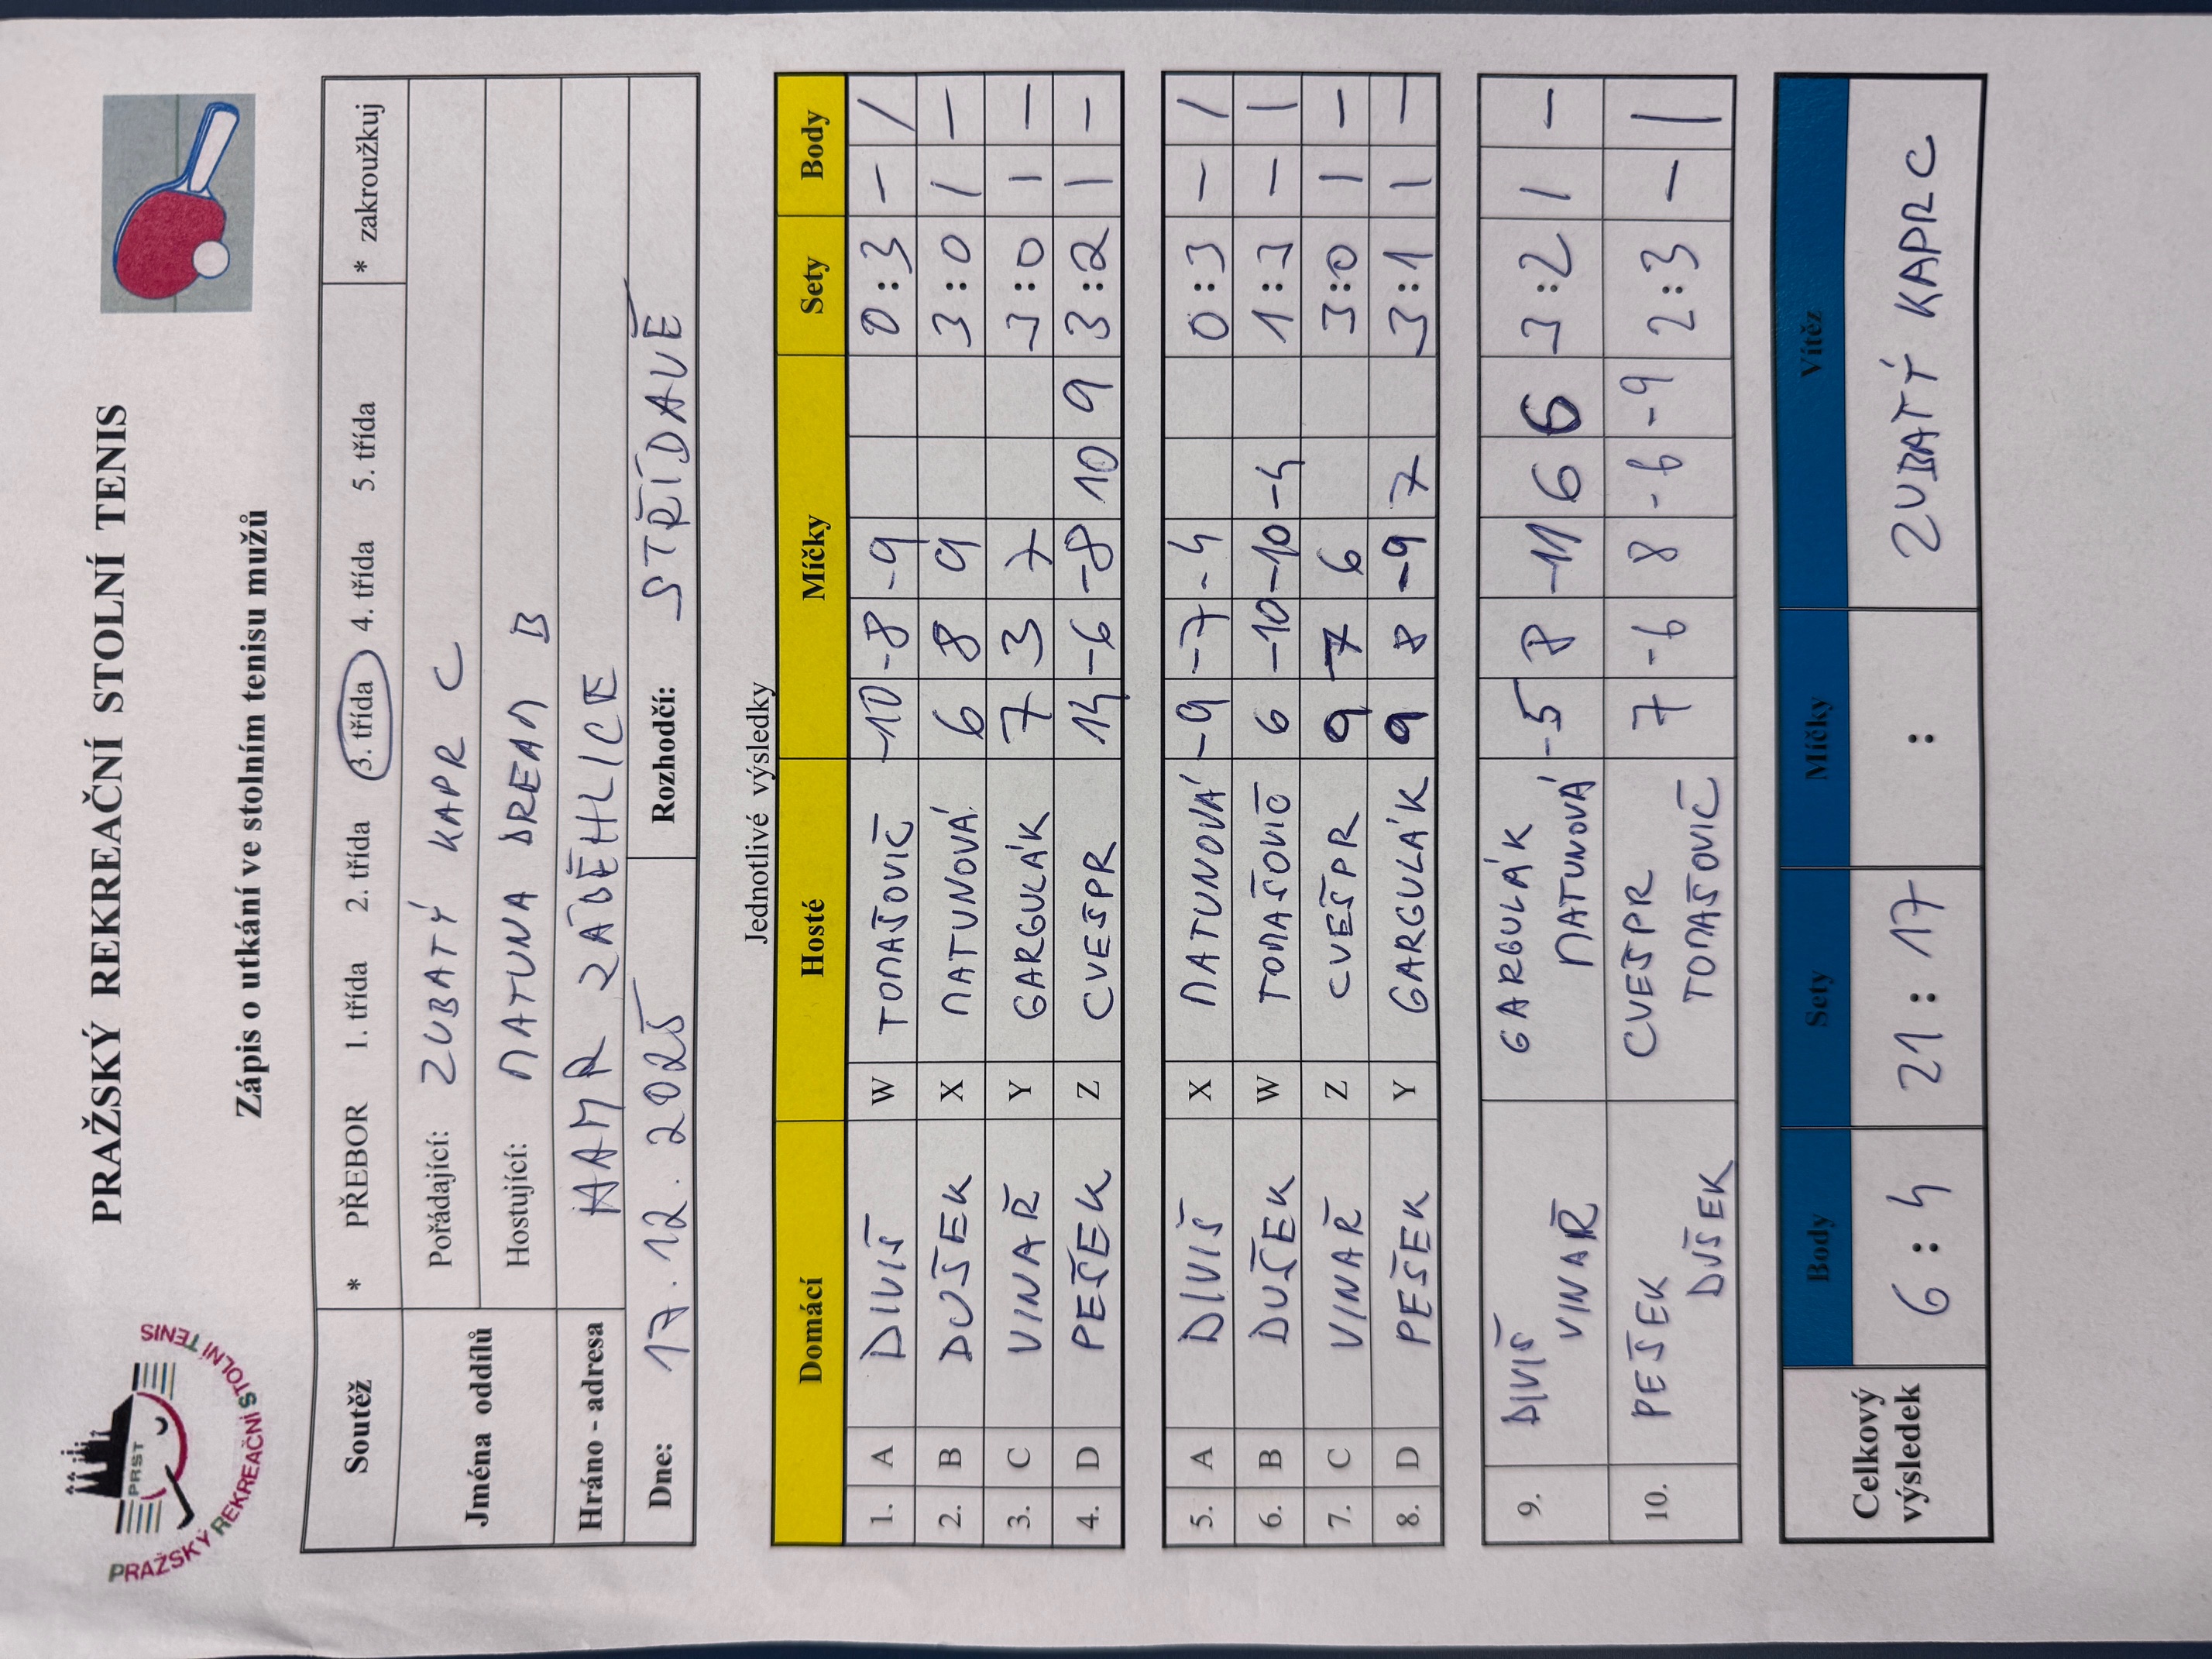 PRST
PRAŽSKÝ REKREAČNÍ STOLNÍ TENIS
PRAŽSKÝ REKREAČNÍ STOLNÍ TENIS
Zápis o utkání ve stolním tenisu mužů
Soutěž * PŘEBOR 1. třída 2. třída 3. třída 4. třída 5. třída * zakroužkuj
Jména oddílů Pořádající: ZUBATÝ KAPR C
Hostující: MATUNA DREAM B
Hráno - adresa HAMR ZÁBĚHLICE
Dne: 17. 12. 2025 Rozhodčí: STŘÍDAVĚ
Jednotlivé výsledky
Domácí Hosté Míčky Sety Body
1. A DIVIŠ W TOMAŠOVIČ -10 -8 -9 0 : 3 - /
2. B DUŠEK X MATUNOVÁ 6 8 9 3 : 0 / -
3. C VINAŘ Y GARGULÁK 7 3 7 3 : 0 1 -
4. D PEŠEK Z CVEŠPR 14 -6 -8 10 9 3 : 2 1 -
5. A DIVIŠ X MATUNOVÁ -9 -7 -4 0 : 3 - /
6. B DUŠEK W TOMAŠOVIČ 6 -10 -10 -4 1 : 3 - 1
7. C VINAŘ Z CVEŠPR 9 7 6 3 : 0 1 -
8. D PEŠEK Y GARGULÁK 9 8 -9 7 3 : 1 1 -
9. DIVIŠ VINAŘ GARGULÁK MATUNOVÁ -5 8 -11 6 6 3 : 2 1 -
10. PEŠEK DUŠEK CVEŠPR TOMAŠOVIČ 7 -6 8 -6 -9 2 : 3 - 1
Celkový výsledek Body Sety Míčky Vítěz
6 : 4 21 : 17 : ZUBATÝ KAPR C